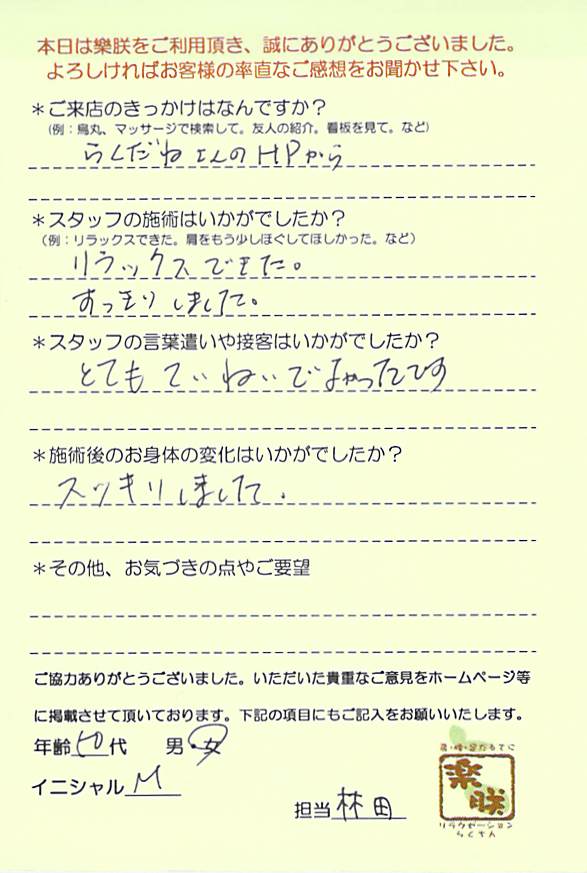 本日は樂朕をご利用頂き、誠にありがとうございました。
よろしければお客様の率直なご感想をお聞かせ下さい。
＊ご来店のきっかけはなんですか？
(例：烏丸、マッサージで検索して。友人の紹介。看板を見て。など)
らくだねさんのHPから
＊スタッフの施術はいかがでしたか？
(例：リラックスできた。肩をもう少しほぐしてほしかった。など)
リラックスできた。
すっきりしました。
＊スタッフの言葉遣いや接客はいかがでしたか？
とてもていねいでよかったです
＊施術後のお身体の変化はいかがでしたか？
スッキリしました。
＊その他、お気づきの点やご要望
ご協力ありがとうございました。いただいた貴重なご意見をホームページ等
に掲載させて頂いております。下記の項目にもご記入をお願いいたします。
年齢50代 男・女
イニシャル M
担当 林田
楽朕
リラクゼーション
らくちん